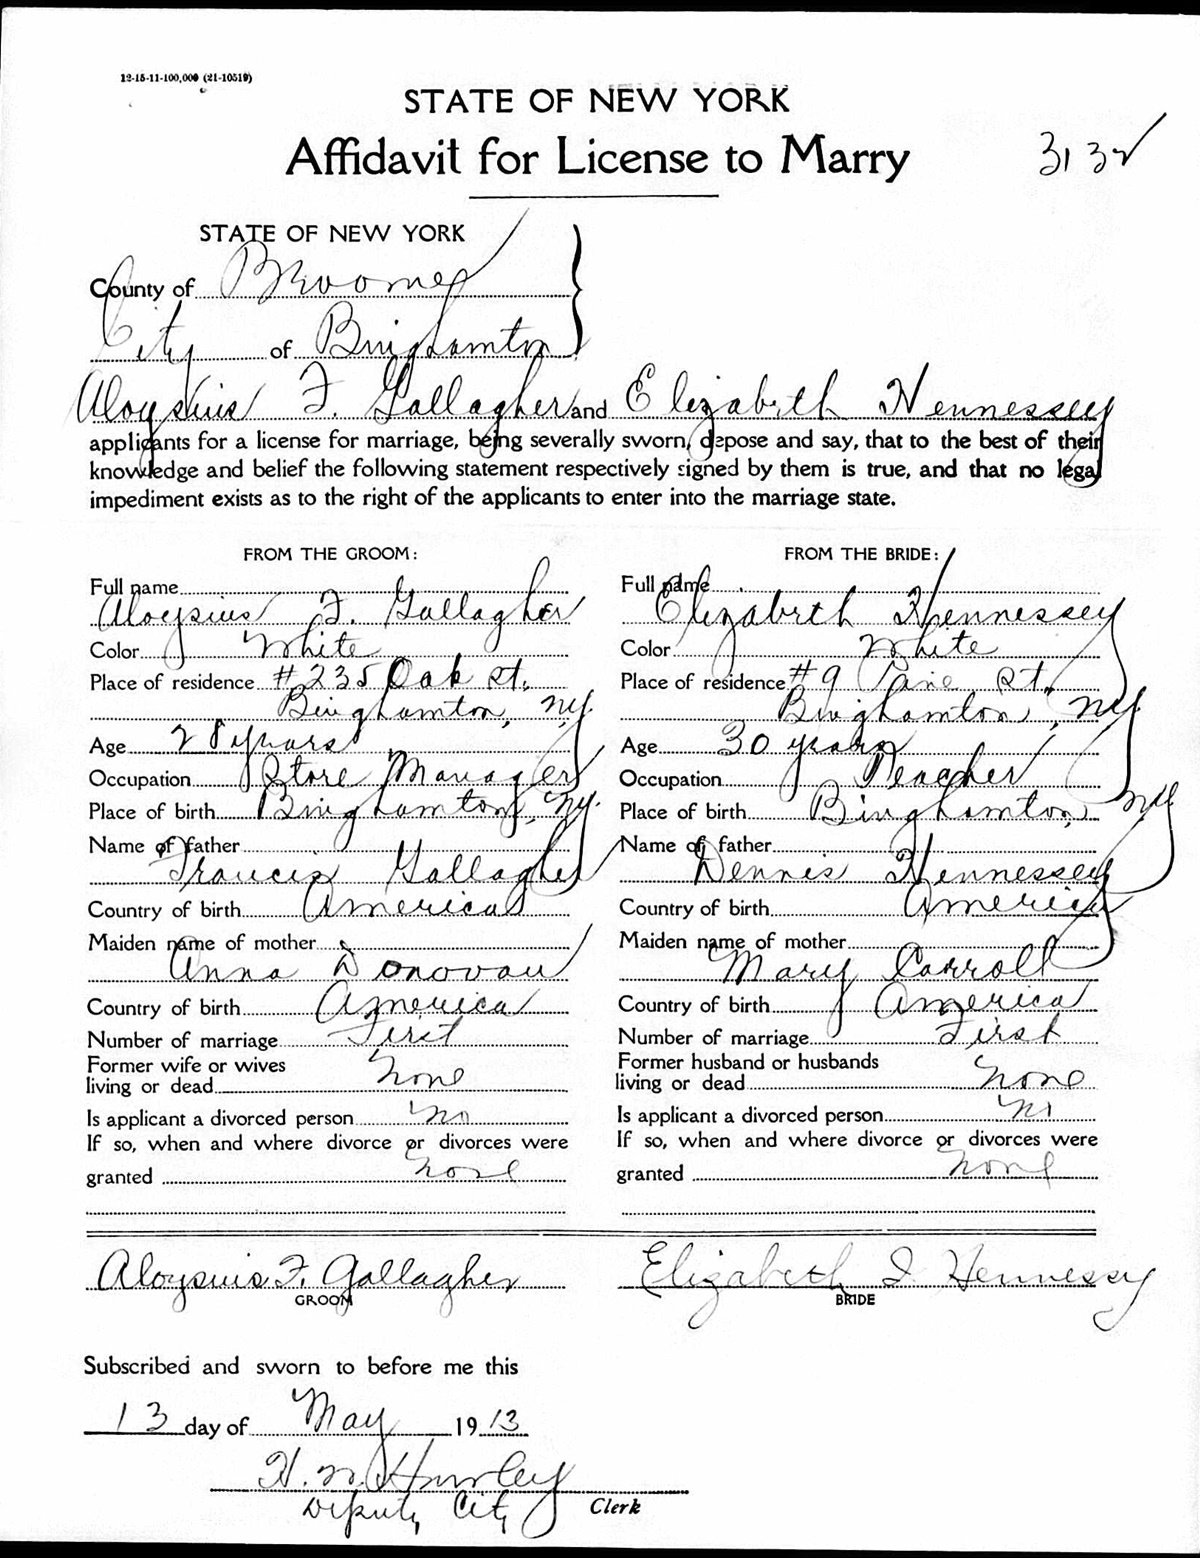 12-15-11-100,000 (21-10519)
STATE OF NEW YORK
Affidavit for License to Marry
3132
STATE OF NEW YORK
County of Broome
City of Binghamton
Aloysius F. Gallagher and Elizabeth Hennessey
applicants for a license for marriage, being severally sworn, depose and say, that to the best of their
knowledge and belief the following statement respectively signed by them is true, and that no legal
impediment exists as to the right of the applicants to enter into the marriage state.
FROM THE GROOM:
Full name
Aloysius F. Gallagher
Color White
Place of residence #235 Oak St.
Binghamton, NY.
Age 28 years
Occupation Store Manager
Place of birth Binghamton, NY.
Name of father
Francis Gallagher
Country of birth America
Maiden name of mother
Anna Donovan
Country of birth America
Number of marriage First
Former wife or wives
living or dead None
Is applicant a divorced person No
If so, when and where divorce or divorces were
granted None
FROM THE BRIDE:
Full name
Elizabeth Hennessey
Color White
Place of residence #9 Pine St.
Binghamton, NY
Age 30 years
Occupation Teacher
Place of birth Binghamton, NY
Name of father
Dennis Hennessey
Country of birth America
Maiden name of mother
Mary Carroll
Country of birth America
Number of marriage First
Former husband or husbands
living or dead None
Is applicant a divorced person No
If so, when and where divorce or divorces were
granted None
Aloysius F. Gallagher
GROOM
Elizabeth I Hennessy
BRIDE
Subscribed and sworn to before me this
13 day of May 1913
H. N. Hurley
Deputy City Clerk